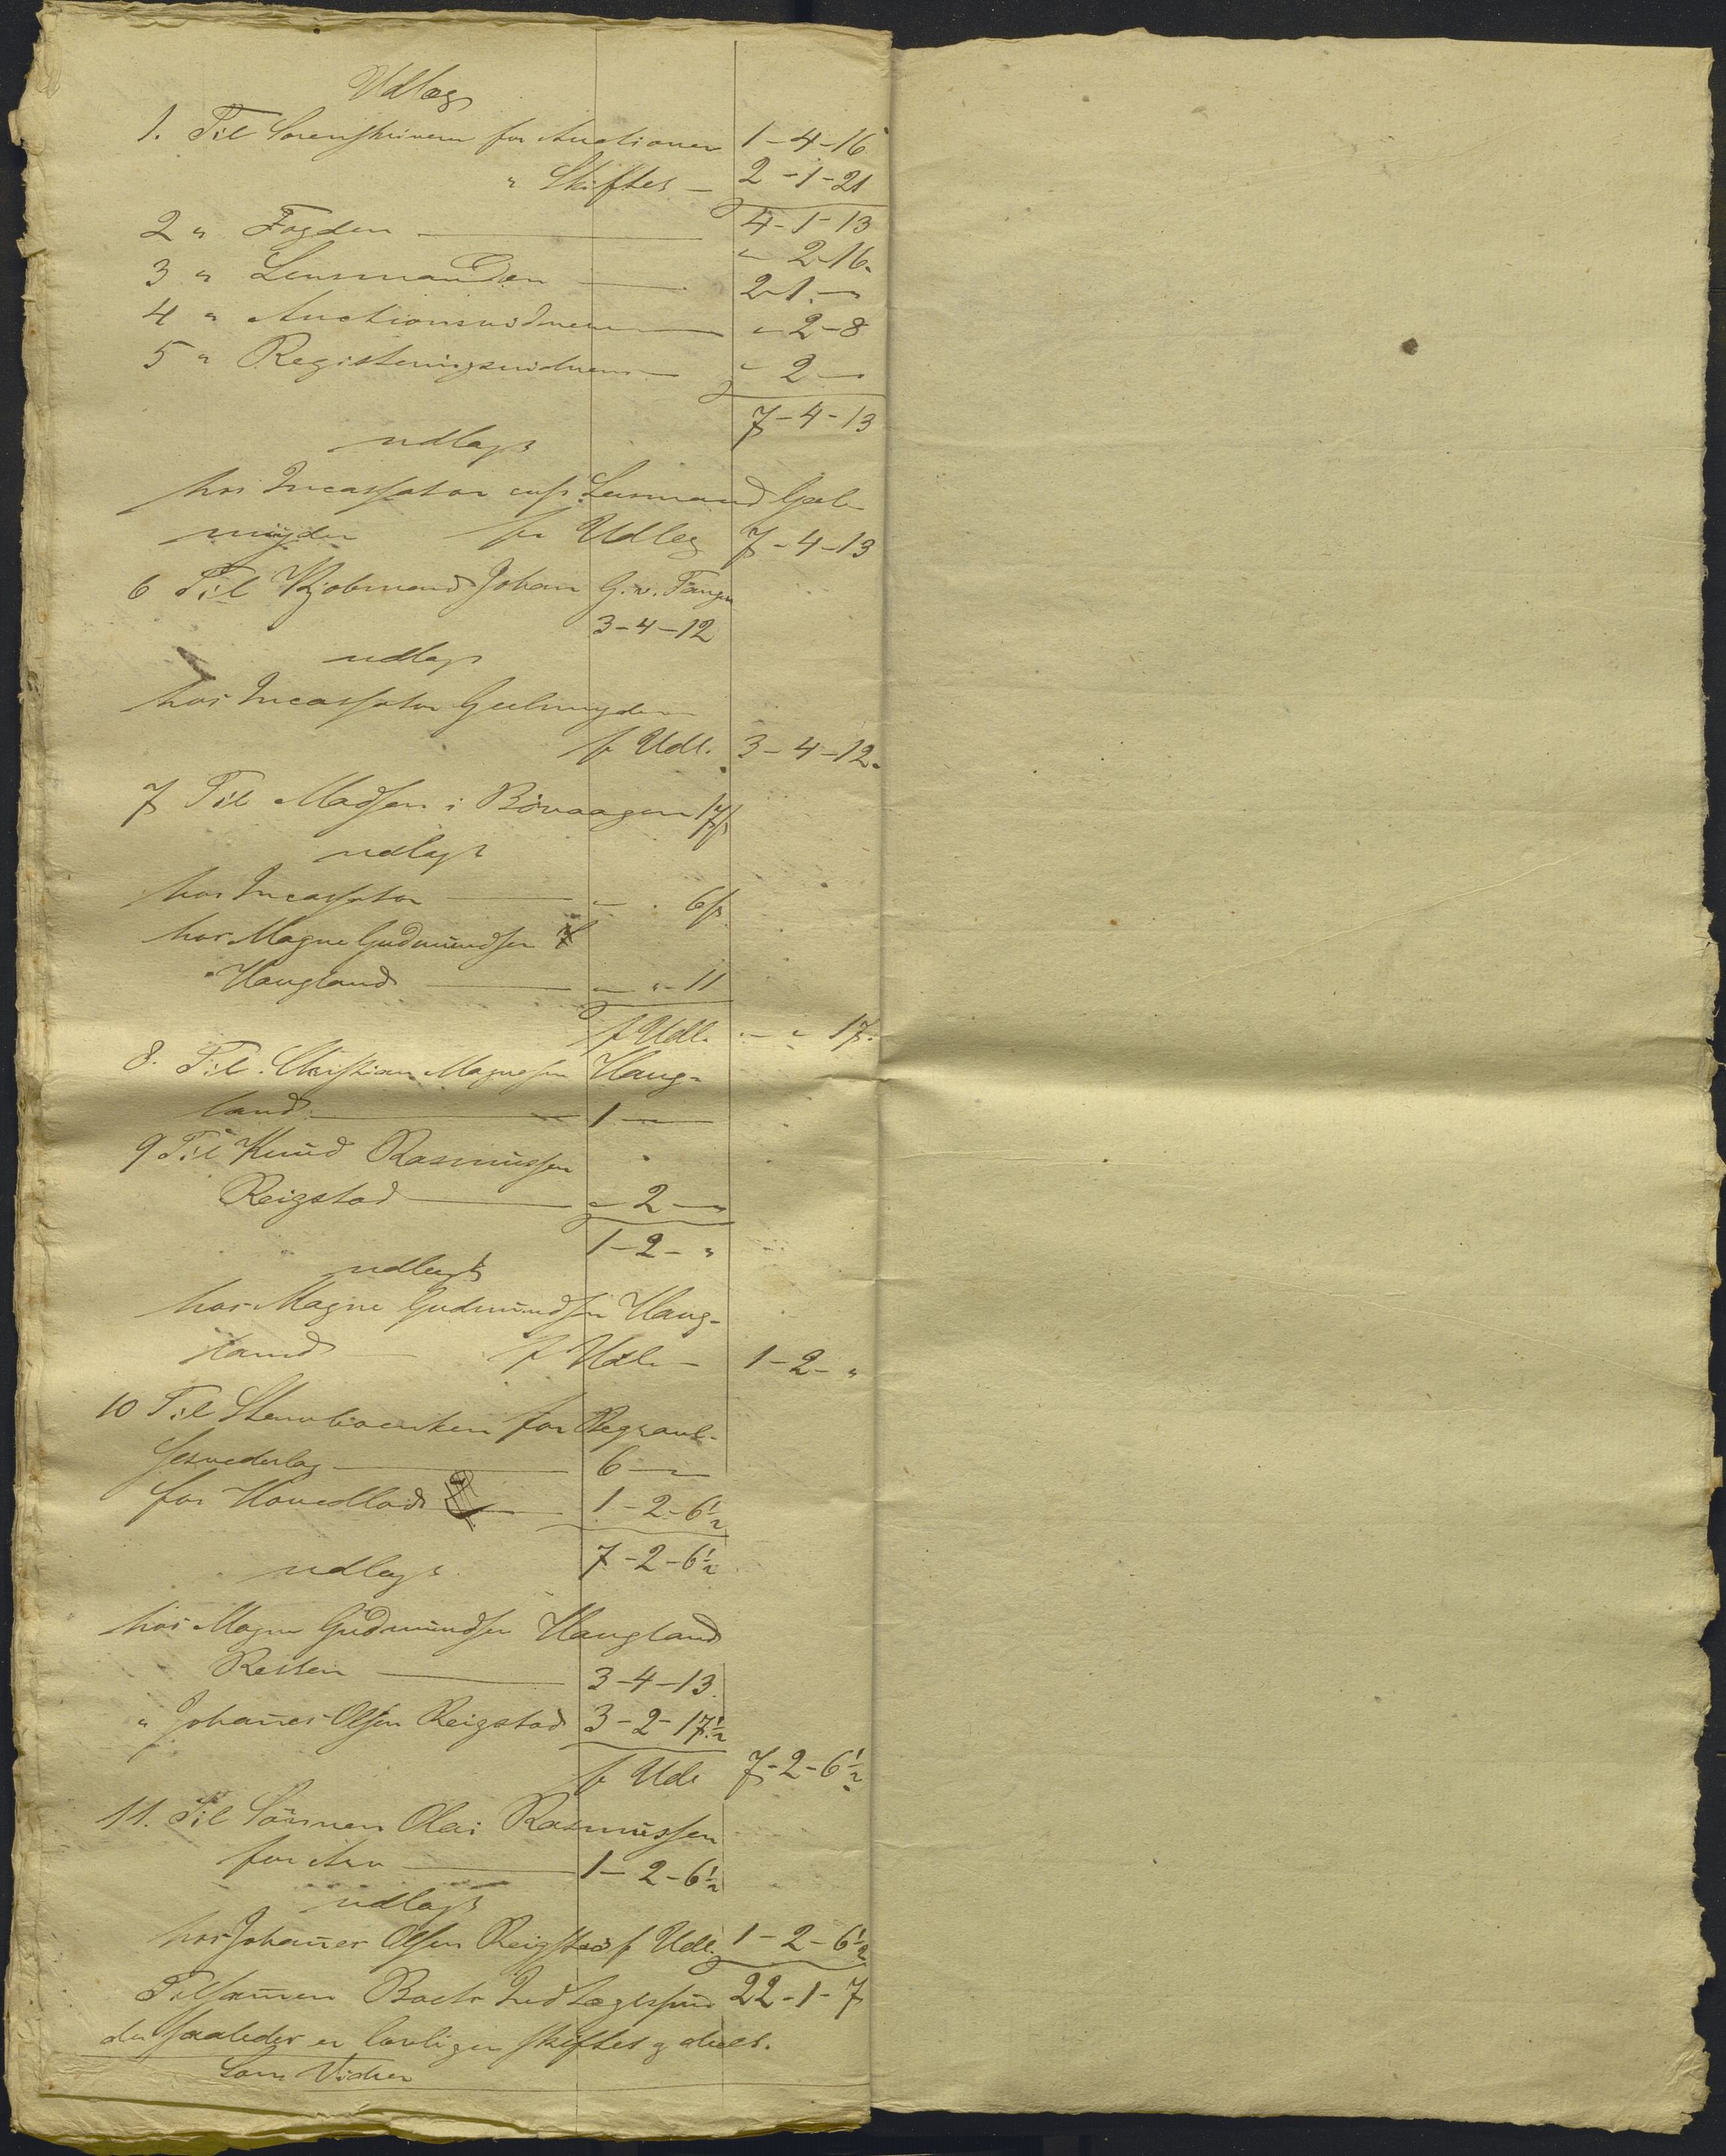 Udlæg
1. Til Sorenskriveren for Auctionen 1-4-16
" Skiftet - 2-1-21
4-1-13
2 " Fogden - " 2-16.
3 " Lensmanden - 2-1-"
4 " Auctionsvidnerne - " 2-8
5 " Registeringsvidnerne - " 2-"
7-4-13
udlagt
hos Incassator Lensmand Geel-
muyden for Udlæg 7-4-13
6 Til Kjøbmand Johan G. v. Tangen
3-4-12
udlagt
hos Incassator Geelmuyden
f Udl. 3-4-12.
7 Til Madsen i Bövaagen 17 ß
udlagt
hos Incassator - " . 6 ß
hos Magne Gudmundsen
Haugland - " " 11
f Udl. " " 17.
8. Til Christian Magnesen Haug-
land - 1 - "
9 Til Knud Rasmussen
Reigstad - " 2 - "
1-2- "
udlagt
hos Magne Gudmundsen Haug-
land f Udl. - 1-2- "
10 Til Stervboenken for Begravel-
sesvederlag - 6 - "
for Hovedlod - 1-2-6½
7-2-6½
udlagt
hos Magne Gudmundsen Haugland
Resten - 3-4-13.
" Johanes Olsen Reigstad 3-2-17½
f Udl 7-2-6½
11. Til Sönnen Olai Rasmussen
for Arv - 1-2-6½
udlagt
hos Johanes Olsen Reigstad f Udl. 1-2-6½
Tilsamen Boets Indtægtssum 22-1-7
der saaledes er lovligen skiftet og deelt.
Som Vidner